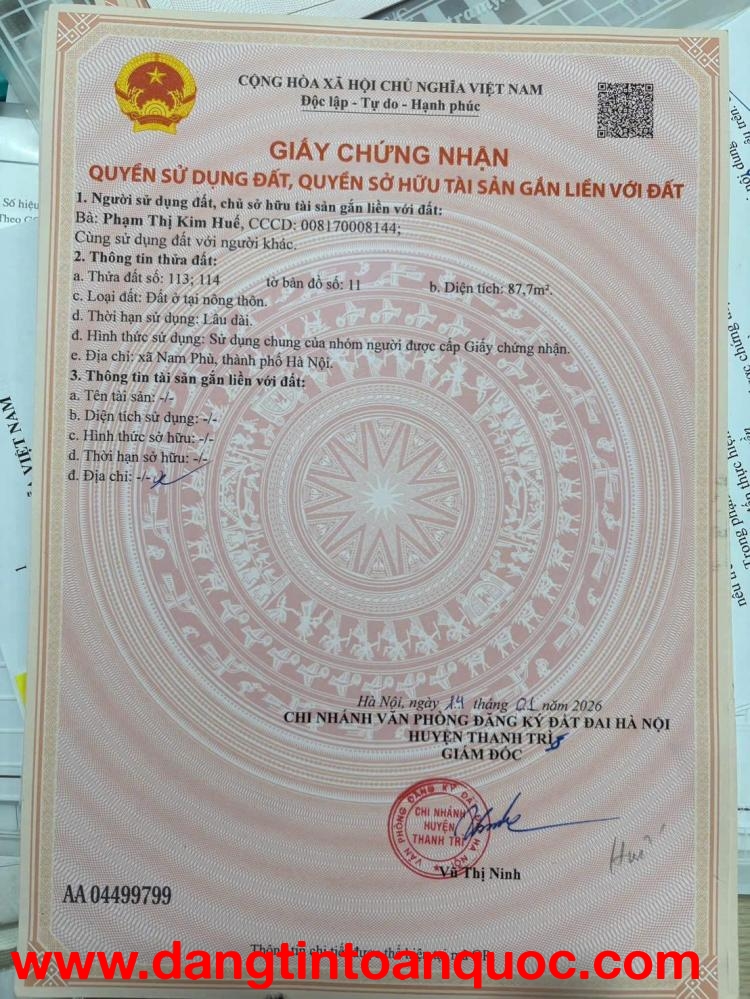 CỘNG HÒA XÃ HỘI CHỦ NGHĨA VIỆT NAM
Độc lập - Tự do - Hạnh phúc
GIẤY CHỨNG NHẬN
QUYỀN SỬ DỤNG ĐẤT, QUYỀN SỞ HỮU TÀI SẢN GẮN LIỀN VỚI ĐẤT
1. Người sử dụng đất, chủ sở hữu tài sản gắn liền với đất:
Bà: Phạm Thị Kim Huế, CCCD: 008170008144;
Cùng sử dụng đất với người khác.
2. Thông tin thửa đất:
a. Thửa đất số: 113; 114 tờ bản đồ số: 11 b. Diện tích: 87,7m².
c. Loại đất: Đất ở tại nông thôn.
d. Thời hạn sử dụng: Lâu dài.
đ. Hình thức sử dụng: Sử dụng chung của nhóm người được cấp Giấy chứng nhận.
e. Địa chỉ: xã Nam Phù, thành phố Hà Nội.
3. Thông tin tài sản gắn liền với đất:
a. Tên tài sản: -/-
b. Diện tích sử dụng: -/-
c. Hình thức sở hữu: -/-
d. Thời hạn sở hữu: -/-
đ. Địa chỉ: -/-
Hà Nội, ngày 14 tháng 01 năm 2026
CHI NHÁNH VĂN PHÒNG ĐĂNG KÝ ĐẤT ĐAI HÀ NỘI
HUYỆN THANH TRÌ
GIÁM ĐỐC
VĂN PHÒNG ĐĂNG KÝ ĐẤT HÀ NỘI
CHI NHÁNH
HUYỆN
THANH TRÌ
Vũ Thị Ninh
AA 04499799
Thông tin chi tiết được thể hiện tại mã QR
www.dangtintoanquoc.com.vn
Số hiệu
VIỆT NAM